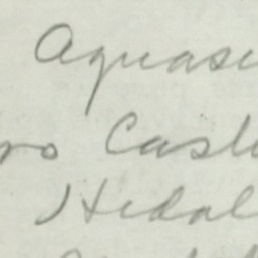 Aquasu
ro Casti
Hidal